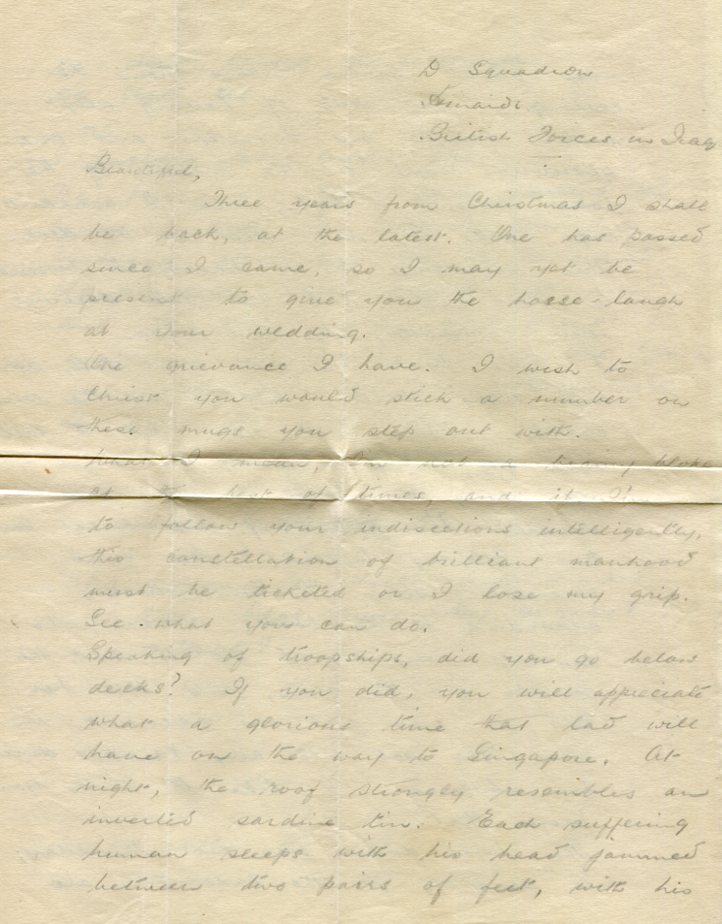 D Squadron
Hinaidi
British Forces in Iraq
Beautiful,
Three years from Christmas I shall
be back, at the latest. One has passed
since I came, so I may yet be
present to give you the horse-laugh
at your wedding.
One grievance I have. I wish to
Christ you would stick a number on
these mugs you step out with.
I mean, I'm not a brainy bloke
at the best of times, and if I'm
to follow your indiscretions intelligently,
this constellation of brilliant manhood
must be ticketed or I lose my grip.
See what you can do.
Speaking of troopships, did you go below
decks? If you did, you will appreciate
what a glorious time that lad will
have on the way to Singapore. At
night, the roof strongly resembles an
inverted sardine tin. Each suffering
human sleeps with his head jammed
between two pairs of feet, with his